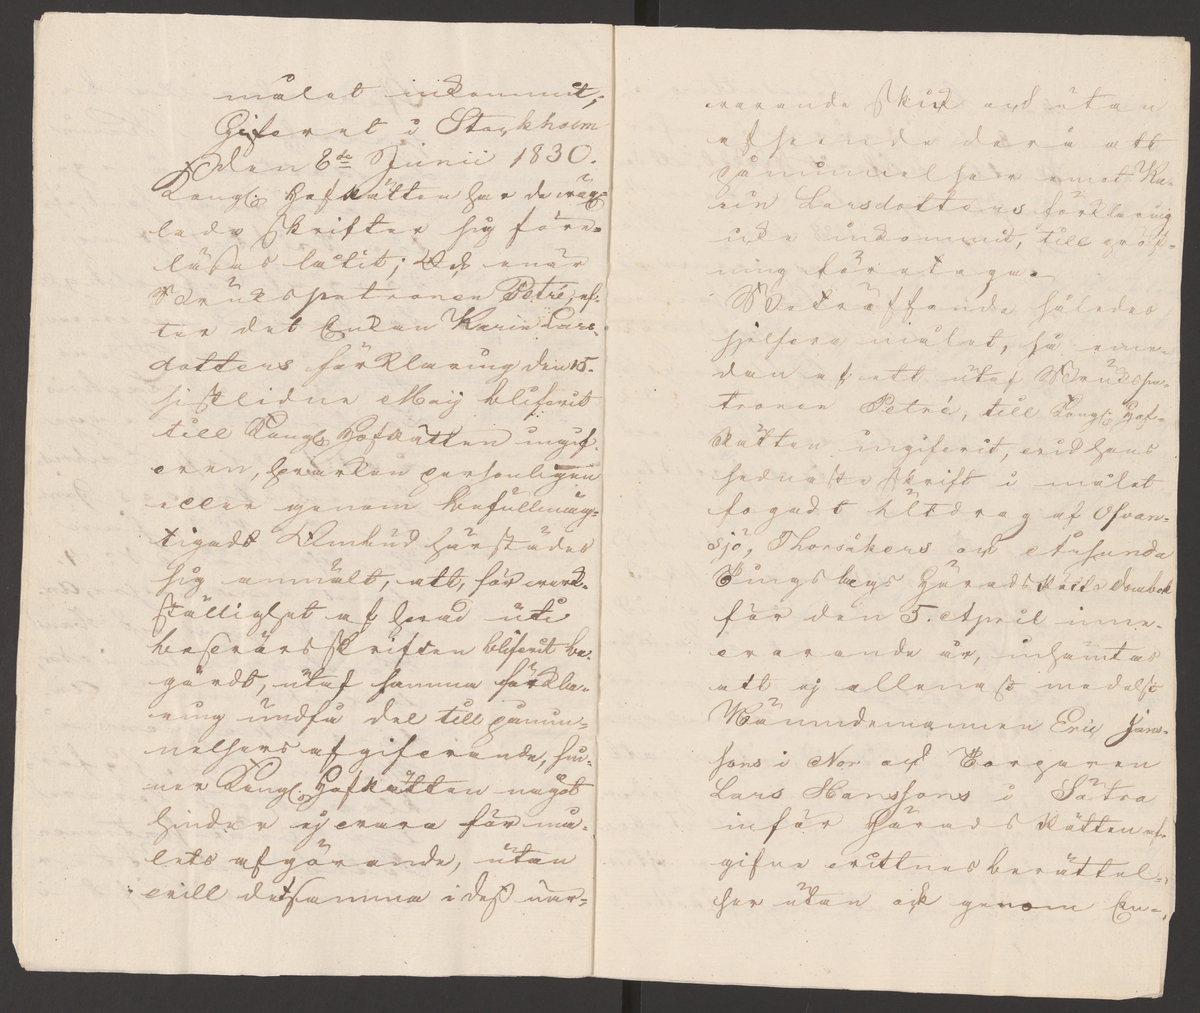 målet inkommit;
Gifvet i Stockholm
den 8de Junii 1830.
Kongl. Hofrätten har de wäx-
lade skrifter sig före-
läsas låtit; Och enär
Bruks patronen Petré, ef-
ter det Enkan Karin Lars-
dotters förklaring den 15.
sistlidne Maij blifvit
till Kongl. Hofrätten ingif-
ven, hwarken personligen
eller genom befullmäg-
tigadt Ombud härstädes
sig anmält, att, för werk-
ställighet af hwad uti
beswärsskriften blifvit be-
gärdt, utaf samma förkla-
ring undfå del till påmin-
nelsers afgifvande, fin-
ner Kongl. Hofrätten något
hinder ej wara för må-
lets afgörande, utan
will detsamma i dess när-
warande skick och utan
afseende derå att
påminnelser emot Ka-
rin Larsdotters förklaring
icke inkommit, till pröf-
ning företaga.
Beträffande således
sjelfva målet, så eme-
dan af ett utaf Bruks pa-
tronen Petré, till Kongl. Hof-
Rätten ingifvit, wid hans
sednaste skrift i målet
fogadt Utdrag af Ofvan-
sjö, Thorsåkers och Årsunda
Tingslags Härads Rätts Dombok
för den 5. April inne-
warande år, inhämtas
att ej allenast medelst
Nämndemannen Eric Jans-
sons i Nor och Torparen
Lars Hanssons i Sätra
inför Härads Rätten af-
gifne wittnesberättel-
ser utan ock genom En-